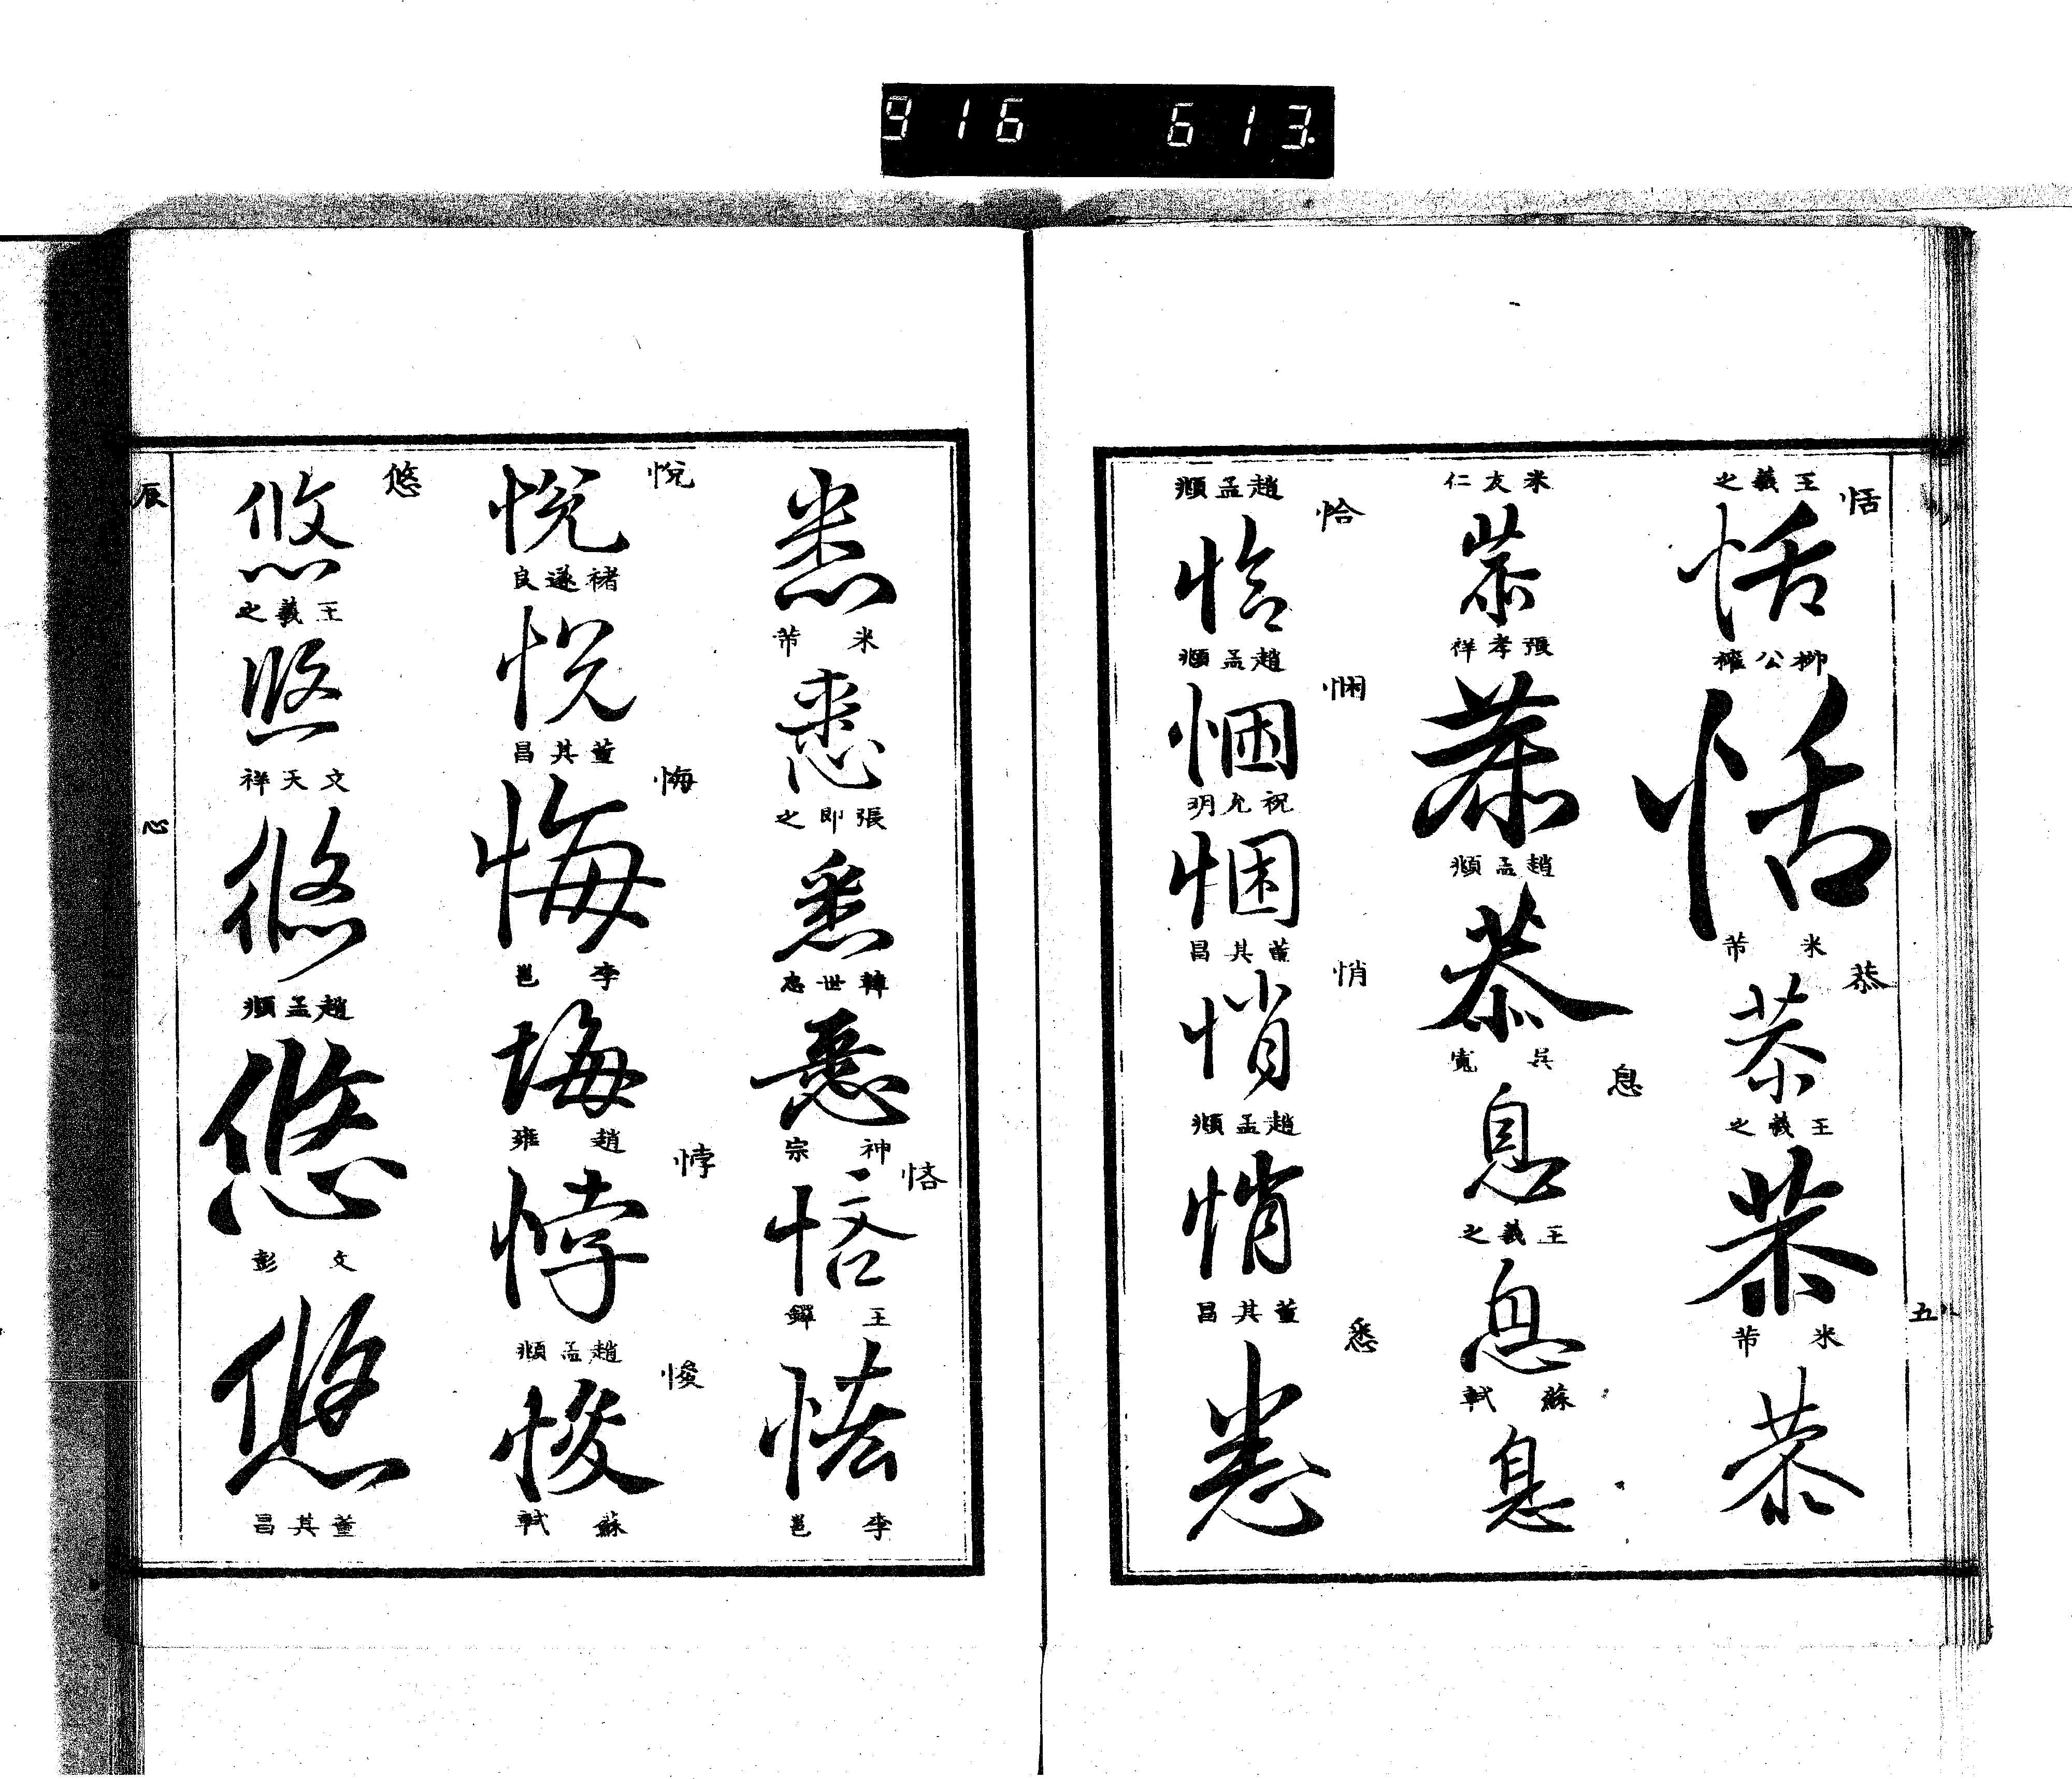 916 613.
恬
王羲之
恬
柳公權
恬
恭
米芾
恭
王羲之
恭
米芾
恭
米友仁
恭
張孝祥
恭
趙孟頫
恭
息
吳寬
息
王羲之
息
蘇軾
息
恰
趙孟頫
恰
悃
趙孟頫
悃
祝允明
悃
悄
董其昌
悄
趙孟頫
悄
悉
董其昌
悉
五
悉
米芾
悉
張即之
悉
韓世忠
悉
悋
神宗
悋
王鐸
悋
李邕
悅
悅
褚遂良
悅
董其昌
悔
悔
李邕
悔
趙雍
悖
悖
趙孟頫
悛
悛
蘇軾
悠
悠
王羲之
悠
文天祥
悠
趙孟頫
悠
文彭
悠
董其昌
辰
心